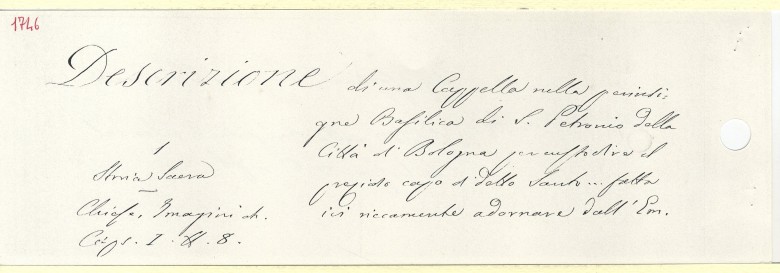 1746
Descrizione di una Cappella nella perinsi:
gne Basilica di S. Petronio della
Città di Bologna per custodire il
prezioso capo di detto Santo... fatta
ivi riccamente adornare dall' Em.
1
Storia Sacra
Chiese, Imagini &.
Caps. I. N. 8.